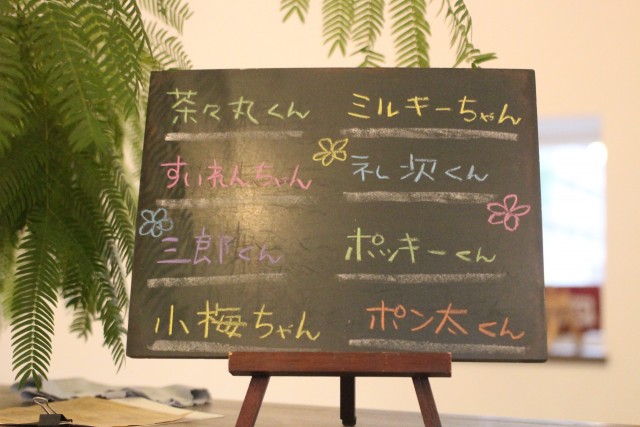 茶々丸くん
ミルキーちゃん
すいれんちゃん
礼次くん
三郎くん
ポッキーくん
小梅ちゃん
ポン太くん